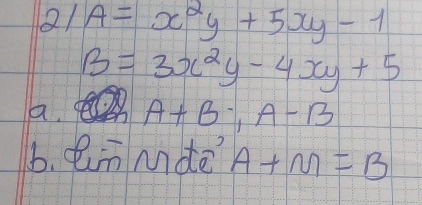 2/ A = x²y + 5xy - 1
B = 3x²y - 4xy + 5
a. A + B ; A - B
b. Tìm M để A + M = B